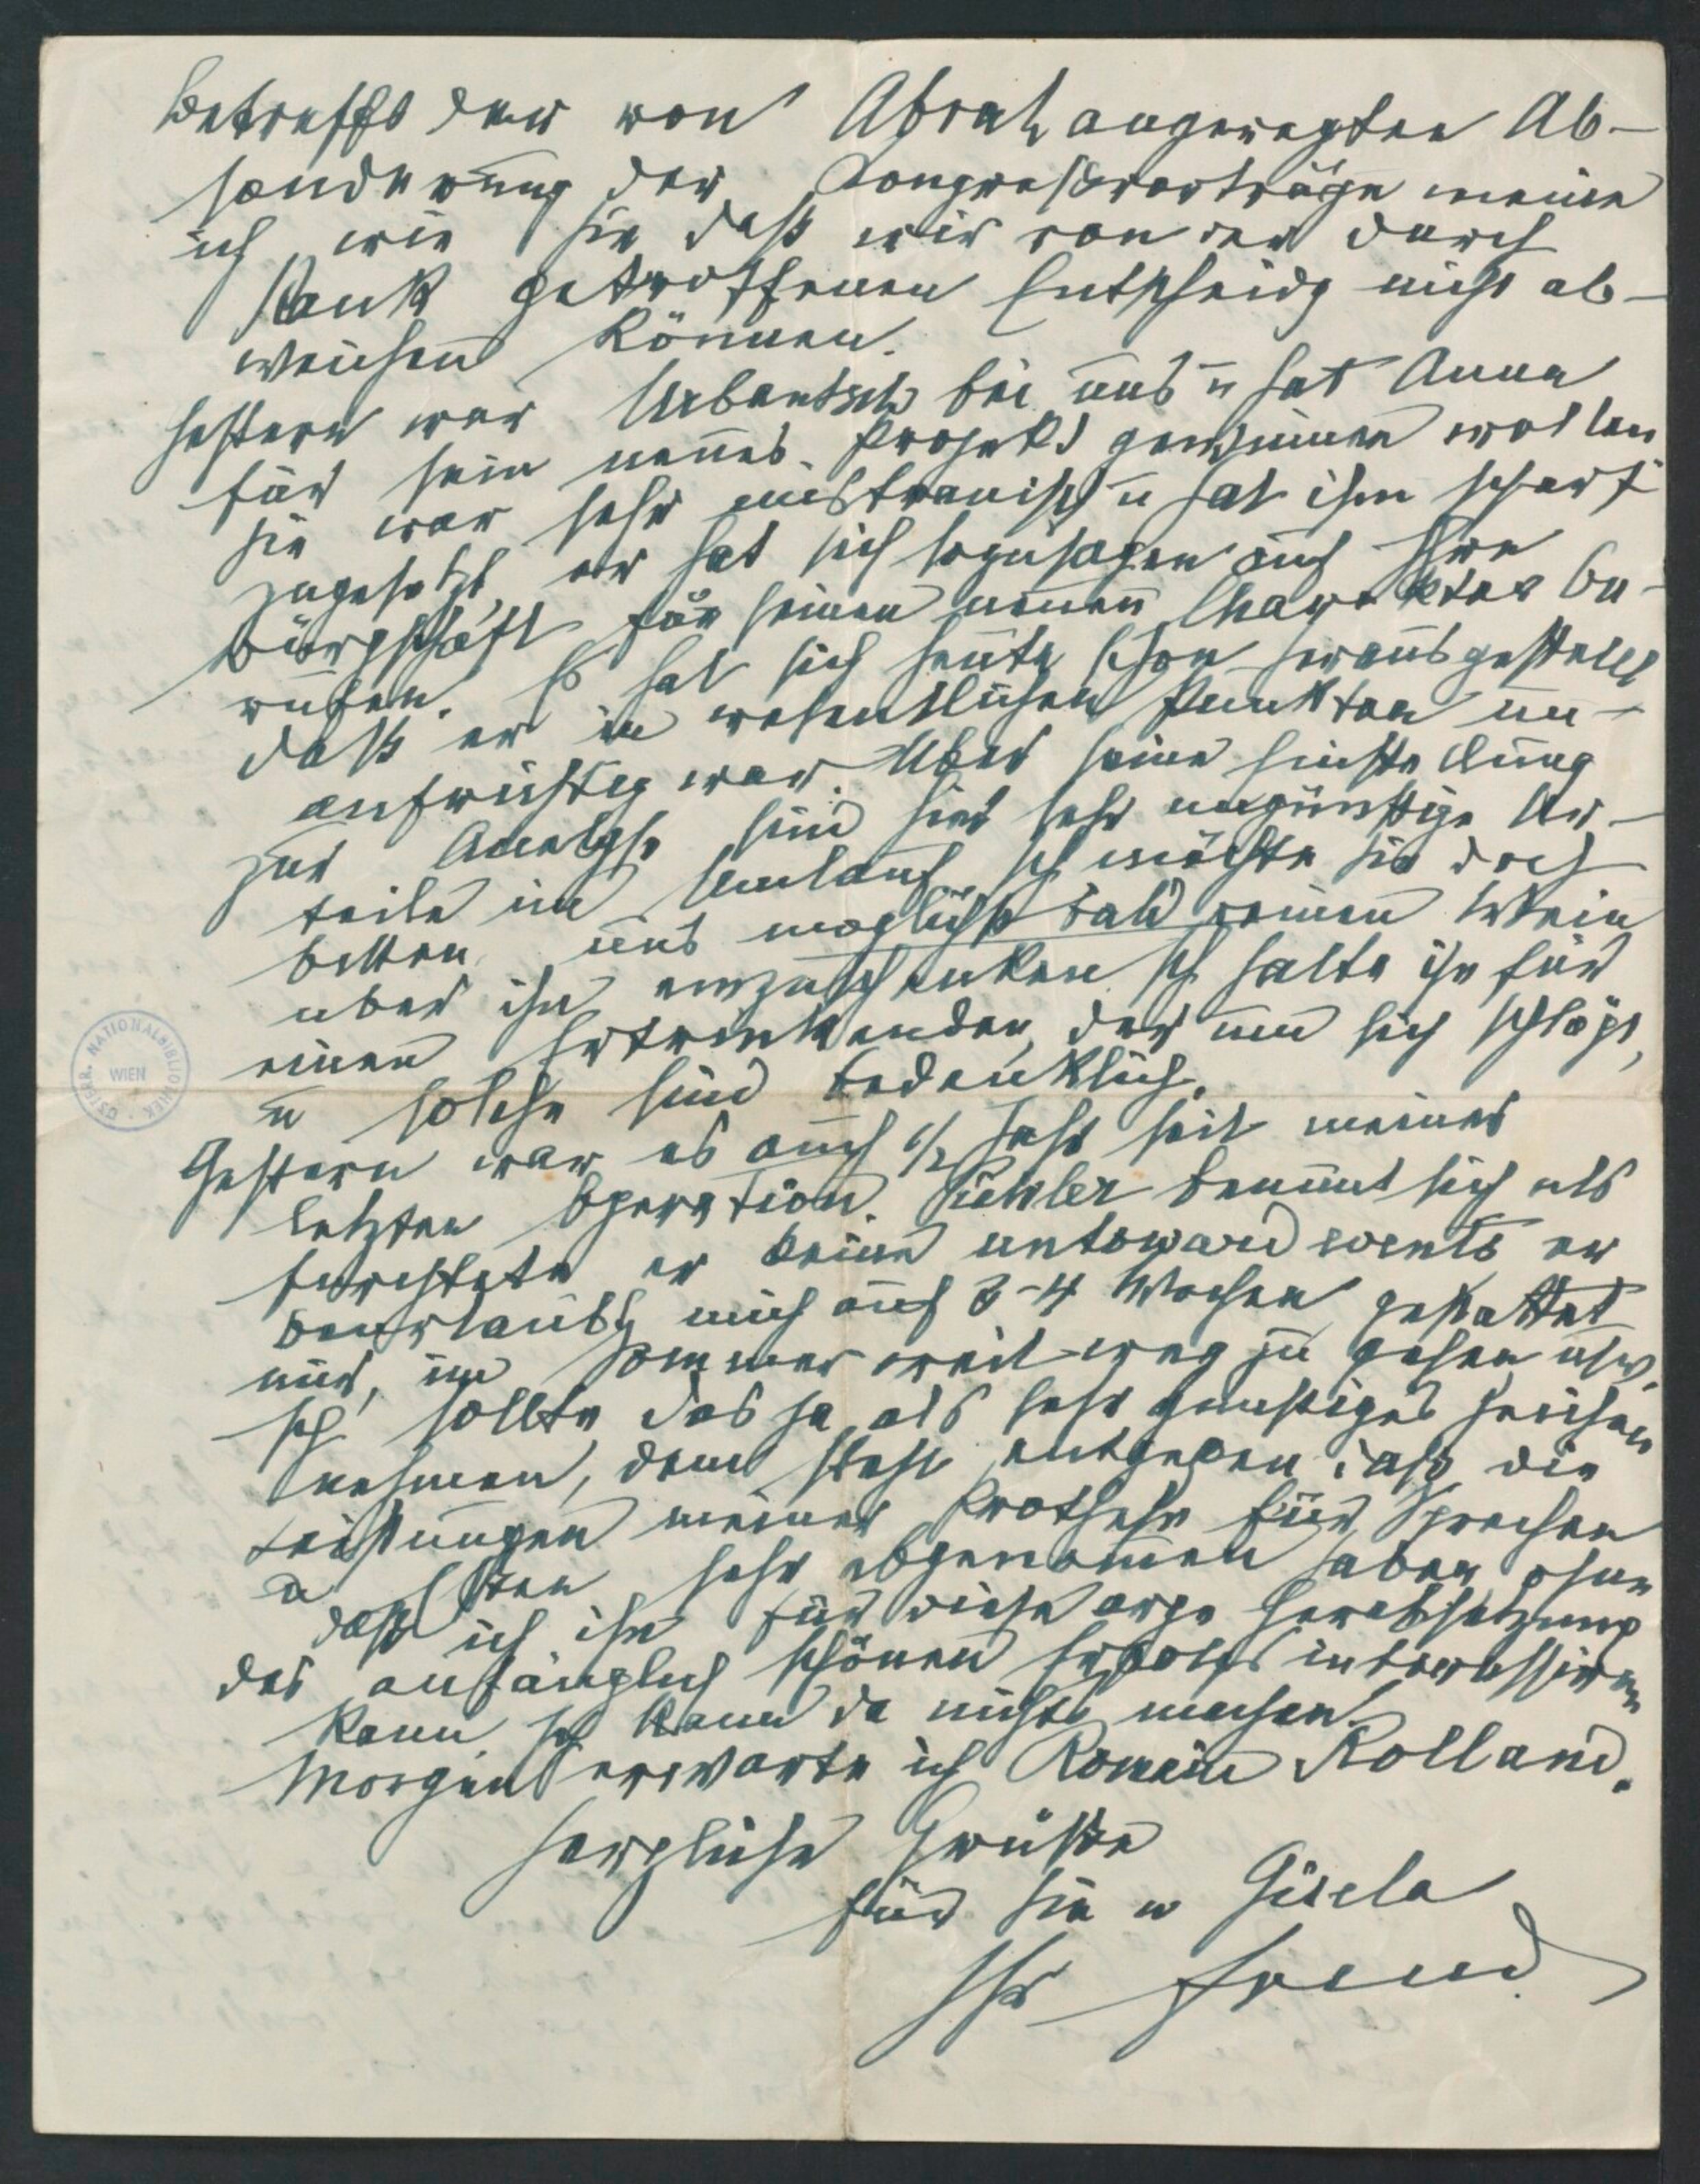 Betreffs der von Abrah angeregten Ab-
sonderung der Kongreßvorträge meine
ich wie Sie daß wir von der durch
Rank getroffenen Entscheidg nicht ab-
weichen können.
Gestern war Urbantsch bei uns u hat Anna
für sein neues Projekt gewinnen wollen
Sie war sehr mistrauisch u hat ihm scharf
zugesetzt, er hat sich sozusagen auf Ihre
Bürgschaft für seinen neuen Charakter be-
rufen. Es hat sich heute schon herausgestellt
daß er in wesentlichen Punkten un-
aufrichtig war. Über seine Einstellung
zur Analyse sind hier sehr ungünstige Ur-
teile im Umlauf. Ich möchte Sie doch
bitten uns möglichst bald reinen Wein
über ihn einzuschenken. Ich halte ihn für
einen Ertrinkenden, der um sich schlägt,
u solche sind bedenklich.
Gestern war es auch 1/2 Jahr seit meiner
letzten Operation. Pichler benimmt sich als
fürchtete er keine untoward events er
beurlaubt mich auf 3-4 Wochen gestattet
mir, im Sommer weit weg zu gehen usw.
Ich sollte das ja als sehr günstiges Zeichen
nehmen, dem steht entgegen daß die
Leistungen meiner Prothese für Sprechen
u sehr abgenommen haben ohne
daß ich ihn für diese arge Herabsetzung
des anfänglich schönen Erfolgs interessiren
kann. Ich kann da nichts machen.
Morgen erwarte ich Romain Rolland.
Herzliche Grüße
für Sie u Gisela
Ihr Freud
ÖSTERR. NATIONALBIBLIOTHEK WIEN